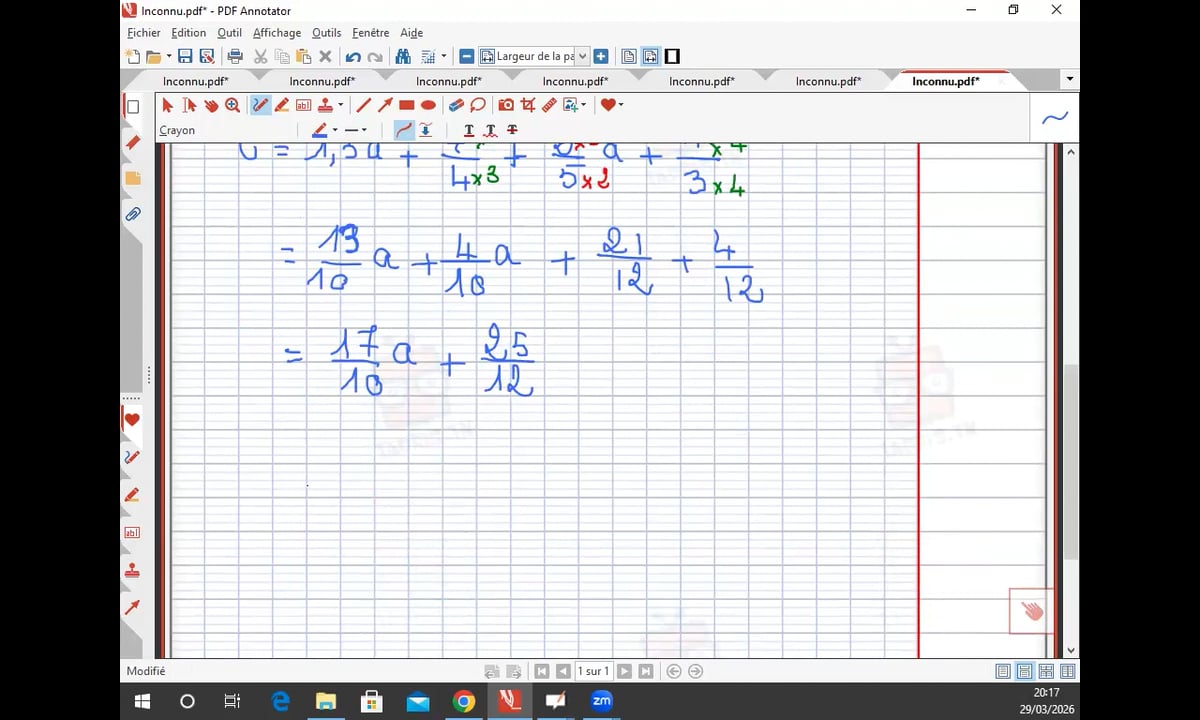 Inconnu.pdf* - PDF Annotator
Fichier Edition Outil Affichage Outils Fenêtre Aide
Largeur de la pa
Inconnu.pdf* Inconnu.pdf* Inconnu.pdf* Inconnu.pdf* Inconnu.pdf* Inconnu.pdf* Inconnu.pdf*
Crayon
= 13/10 a + 4/10 a + 21/12 + 4/12
= 17/10 a + 25/12
Modifié
1 sur 1
zm
20:17
29/03/2026